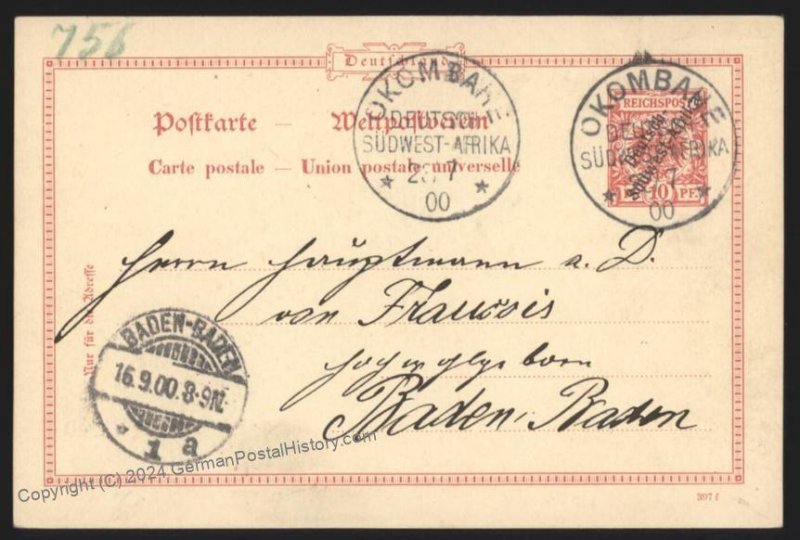 756
Deutschland
OKOMBAHE
DEUTSCH
SÜDWEST-AFRIKA
7
00
OKOMBAHE
DEUTSCH
SÜDWEST-AFRIKA
7
00
REICHSPOST
Deutsch-
Südwest-Afrika
10 PF.
Postkarte — Weltpostverein
Carte postale — Union postale universelle
Nur für die Adresse
Herrn Hauptmann a. D.
von François
Hochwolgeboren
Baden-Baden
BADEN-BADEN
16.9.00.8-9N.
* 1 a
397 f
Copyright (C) 2024 GermanPostalHistory.com